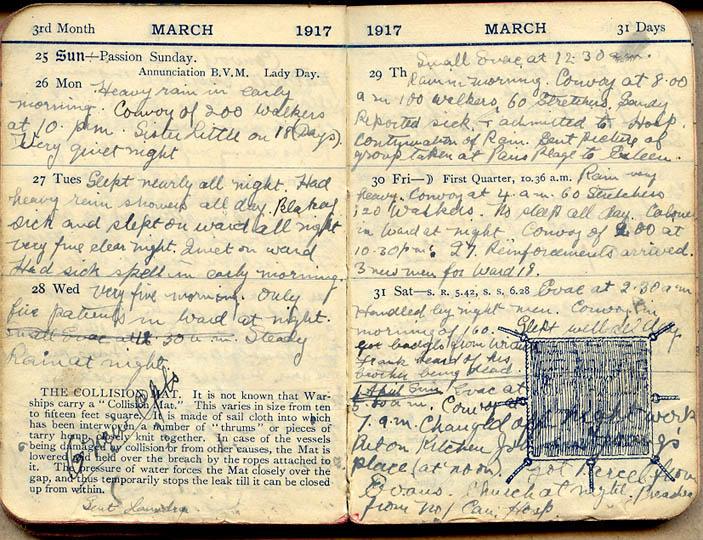 3rd Month MARCH 1917
25 Sun—Passion Sunday.
Annunciation B.V.M. Lady Day.
26 Mon Heavy rain in early
morning. Convoy of 200 walkers
at 10. p.m. Sister Little on 18 (Days).
Very quiet night
27 Tues Slept nearly all night. Had
heavy rain showers all day.
sick and slept on ward all night
very fine clear night. Quiet on ward
Had sick spell in early morning.
28 Wed Very fine morning. Only
five patients in ward at night.
Small Evac at 12 30 a.m. Steady
Rain at night
THE COLLISION MAT. It is not known that War-
ships carry a "Collision Mat." This varies in size from ten
to fifteen feet square. It is made of sail cloth into which
has been interwoven a number of "thrums" or pieces of
tarry hemp closely knit together. In case of the vessels
being damaged by collision or from other causes, the Mat is
lowered and held over the breach by the ropes attached to
it. The pressure of water forces the Mat closely over the
gap, and thus temporarily stops the leak till it can be closed
up from within.
Sent Laundry
1917 MARCH 31 Days
Small Evac at 12.30 a.m.
29 Th Rain in morning. Convoy at 8.00
a m 100 walkers, 60 Stretchers. Sandy
Reported sick & admitted to Hosp.
Continuation of Rain. Sent picture of
group taken at Paris Plage to Eileen.
30 Fri—☽ First Quarter, 10.36 a.m. Rain very
heavy. Convoy at 4 a.m. 60 Stretchers
120 Walkers. No sleep all day.
in ward at night Convoy of 200 at
10.30 p.m. 27 Reinforcements arrived.
3 new men for Ward 18.
31 Sat—S. R. 5.42, S. S. 6.28 Evac at 2.30 a.m
Handled by night men. Convoy in
morning of 160. Slept well all day
got from
Frank heard of his
brother being dead.
1 April Sun Evac at
a.m. Convoy at
7. a.m. Changed off night work
Put on Kitchen
place (at noon). Got Parcel from
Evans. Church at night.
from No 1 Can. Hosp